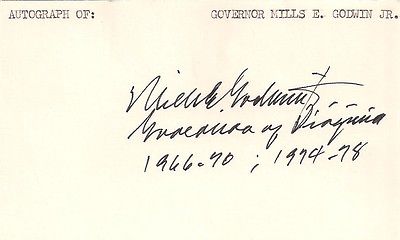 AUTOGRAPH OF: GOVERNOR MILLS E. GODWIN JR.
Mills E. Godwin Jr
Governor of Virginia
1966-70 ; 1974-78